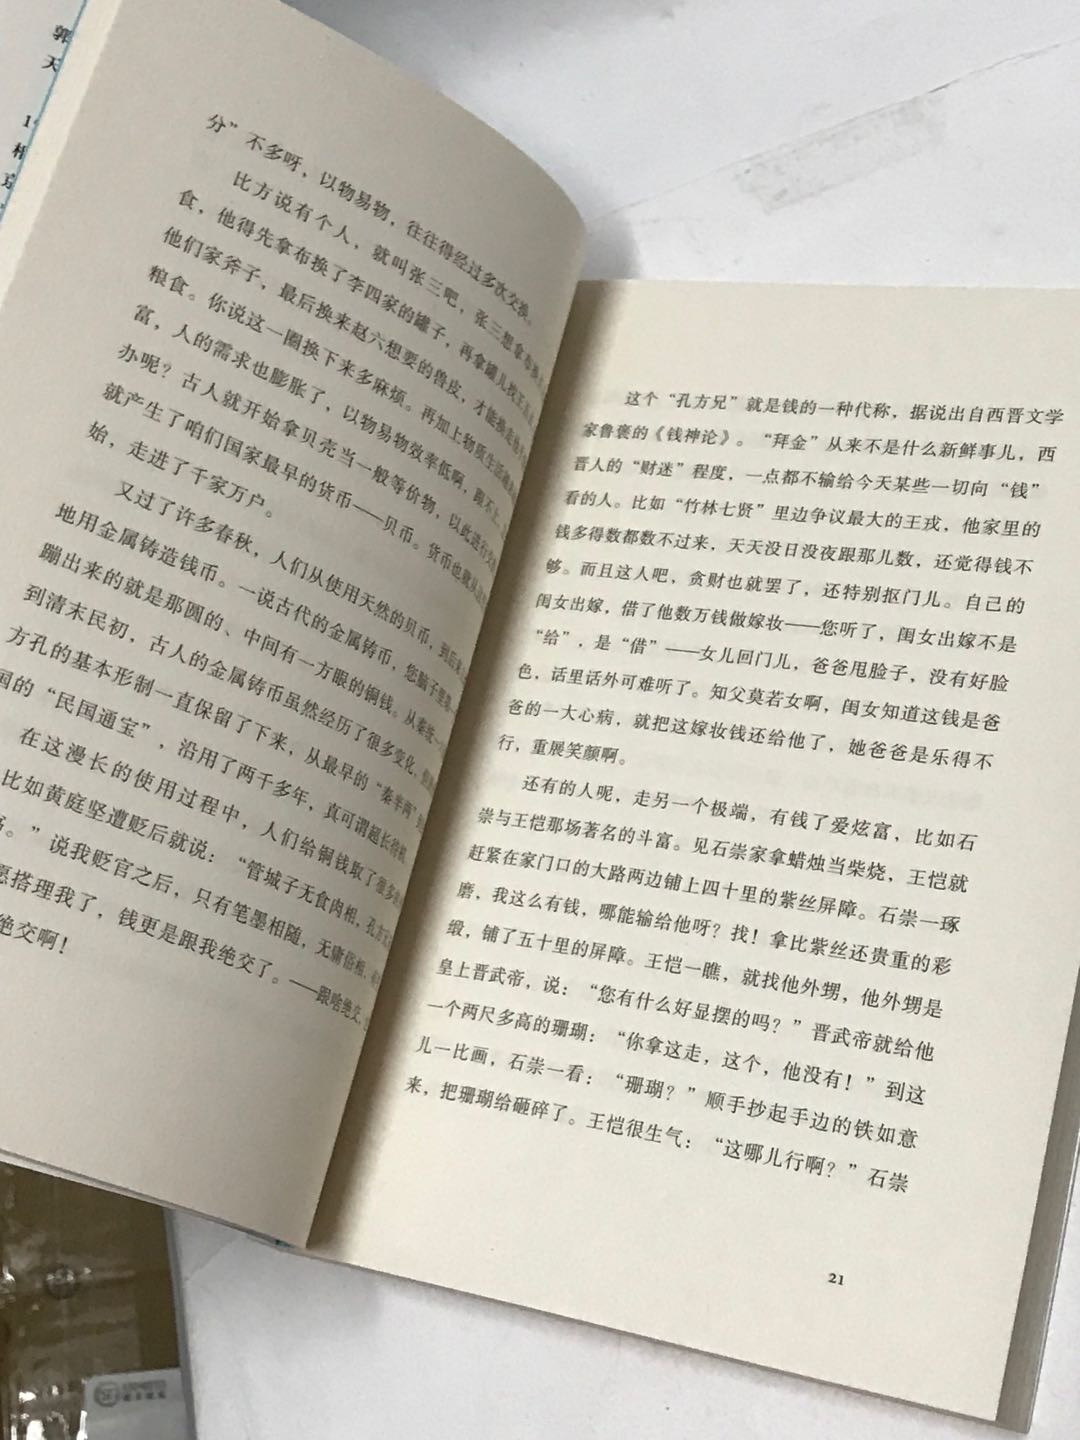 郭
天
分”不多呀，以物易物，往往得经过多次交换。
比方说有个人，就叫张三吧，张三想拿布换
食，他得先拿布换了李四家的罐子，再拿罐儿找王五
他们家斧子，最后换来赵六想要的兽皮，才能换走
粮食。你说这一圈换下来多麻烦。再加上物质生活
富，人的需求也膨胀了，以物易物效率低啊，跟不上
办呢？古人就开始拿贝壳当一般等价物，以此进行
就产生了咱们国家最早的货币——贝币。货币也就从
始，走进了千家万户。
又过了许多春秋，人们从使用天然的贝币，到后来
地用金属铸造钱币。一说古代的金属铸币，您脑子里
蹦出来的就是那圆的、中间有一方眼的铜钱。从秦统一
到清末民初，古人的金属铸币虽然经历了很多变化，
方孔的基本形制一直保留了下来，从最早的“秦半两”
国的“民国通宝”，沿用了两千多年，真可谓超长待机。
在这漫长的使用过程中，人们给铜钱取了很多
比如黄庭坚遭贬后就说：“管城子无食肉相，孔方兄
。”说我贬官之后，只有笔墨相随，无庸俗相，
愿搭理我了，钱更是跟我绝交了。——跟啥绝交，
绝交啊！
这个“孔方兄”就是钱的一种代称，据说出自西晋文学
家鲁褒的《钱神论》。“拜金”从来不是什么新鲜事儿，西
晋人的“财迷”程度，一点都不输给今天某些一切向“钱”
看的人。比如“竹林七贤”里边争议最大的王戎，他家里的
钱多得数都数不过来，天天没日没夜跟那儿数，还觉得钱不
够。而且这人吧，贪财也就罢了，还特别抠门儿。自己的
闺女出嫁，借了他数万钱做嫁妆——您听了，闺女出嫁不是
“给”，是“借”——女儿回门儿，爸爸甩脸子，没有好脸
色，话里话外可难听了。知父莫若女啊，闺女知道这钱是爸
爸的一大心病，就把这嫁妆钱还给他了，她爸爸是乐得不
行，重展笑颜啊。
还有的人呢，走另一个极端，有钱了爱炫富，比如石
崇与王恺那场著名的斗富。见石崇家拿蜡烛当柴烧，王恺就
赶紧在家门口的大路两边铺上四十里的紫丝屏障。石崇一琢
磨，我这么有钱，哪能输给他呀？找！拿比紫丝还贵重的彩
缎，铺了五十里的屏障。王恺一瞧，就找他外甥，他外甥是
皇上晋武帝，说：“您有什么好显摆的吗？”晋武帝就给他
一个两尺多高的珊瑚：“你拿这走，这个，他没有！”到这
儿一比画，石崇一看：“珊瑚？”顺手抄起手边的铁如意
来，把珊瑚给砸碎了。王恺很生气：“这哪儿行啊？”石崇
21